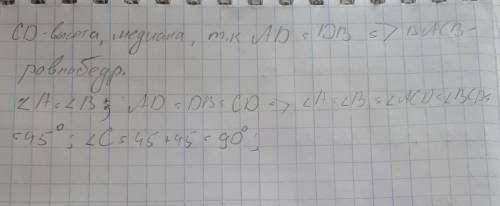 CD-высота, медиана, т.к AD = DB => ΔACB-
равнобедр.
∠A=∠B; AD = DB = CD => ∠A=∠B=∠ACD=∠BCD=
=45°; ∠C = 45+45 = 90°;